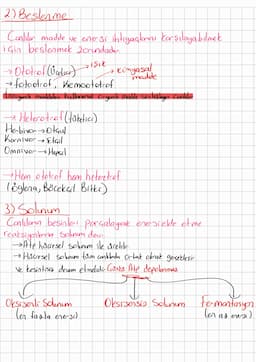 2) Beslenme
Canlılar madde ve enerji ihtiyaçlarını karşılayabilmek
için beslenmek zorundadır.
→ışık
→Ototrof (Üretici) →kimyasal
madde
→fotoototrof, Kemoototrof
İnorganik maddeleri kullanarak organik madde sentezleyen canlılar
→Heterotrof (tüketici)
Herbivor→Otçul
Karnivor→Etçil
Omnivor→Hepçil
→Hem ototrof hem heterotrof
(öglena, Böcekçil Bitki)
3) Solunum
Canlıların besinleri parçalayarak enerji elde etme
reaksiyonlarına solunum denir.
→Atp hücresel solunum ile üretilir
→Hücresel solunum tüm canlılarda ortak olarak gerçekleşir
ve kesintisiz devam etmelidir. Çünkü Atp depolanmaz
Oksijenli Solunum Oksijensiz Solunum Fermantasyon
(en fazla enerji) (en az enerji)